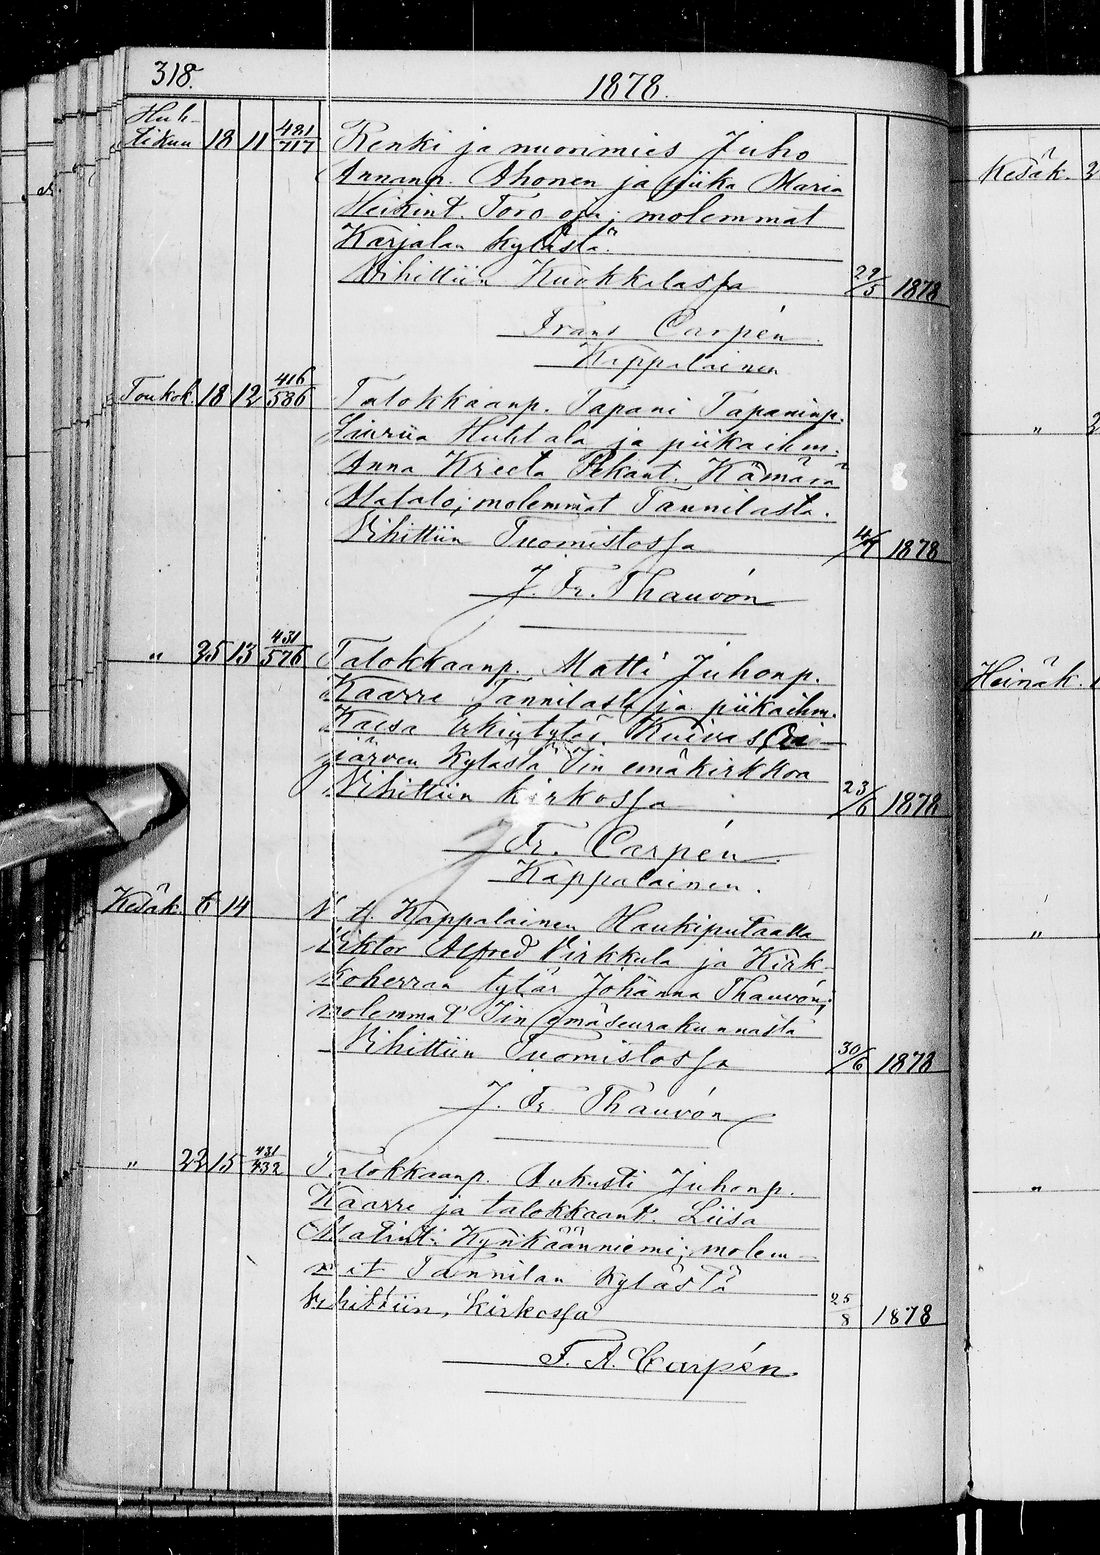 318. 1878.
Huh-
tikuu 18 11 481/717 Renki ja nuorimies Juho
Annanp. Ahonen ja piika Maria
Heikint. Toro oja; molemmat
Karjalan kylästä.
Vihittiin Kuokkalassa 29/5 1878
Frans Carpén.
Kappalainen
Toukok. 18 12 416/586 Talokkaanp. Tapani Tapaninp.
Huhtala ja piikaihm.
Anna Kreeta Pekant. Kämärä
Matalo; molemmat Tannilasta.
Vihittiin Tuomistossa 4/7 1878
J. Fr. Thauvón
" 25 13 431/576 Talokkaanp. Matti Juhonp.
Kaarre Tannilasta ja piikaihm.
Kaisa Erkintytöi Kuivas Oi-
järven kylästä Iin emäkirkkoa
Vihittiin kirkossa 23/6 1878
Fr. Carpén
Kappalainen.
Kesäk. 6 14 V. t. Kappalainen Haukiputaalla
Viktor Alfred Virkkula ja Kirk-
koherran tytär Johanna Thauvón;
molemmat Iin emäseurakunnasta
Vihittiin Tuomistossa 30/6 1878
J. Fr. Thauvón
" 22 15 431/432 Talokkaanp. Aukusti Juhonp.
Kaarre ja talokkaant. Liisa
Matint. Kynkäänniemi; molem-
mat Tannilan kylästä
Vihittiin, kirkossa 25/8 1878
F. A. Carpén.
Kesäk.
"
Heinäk.
"
"